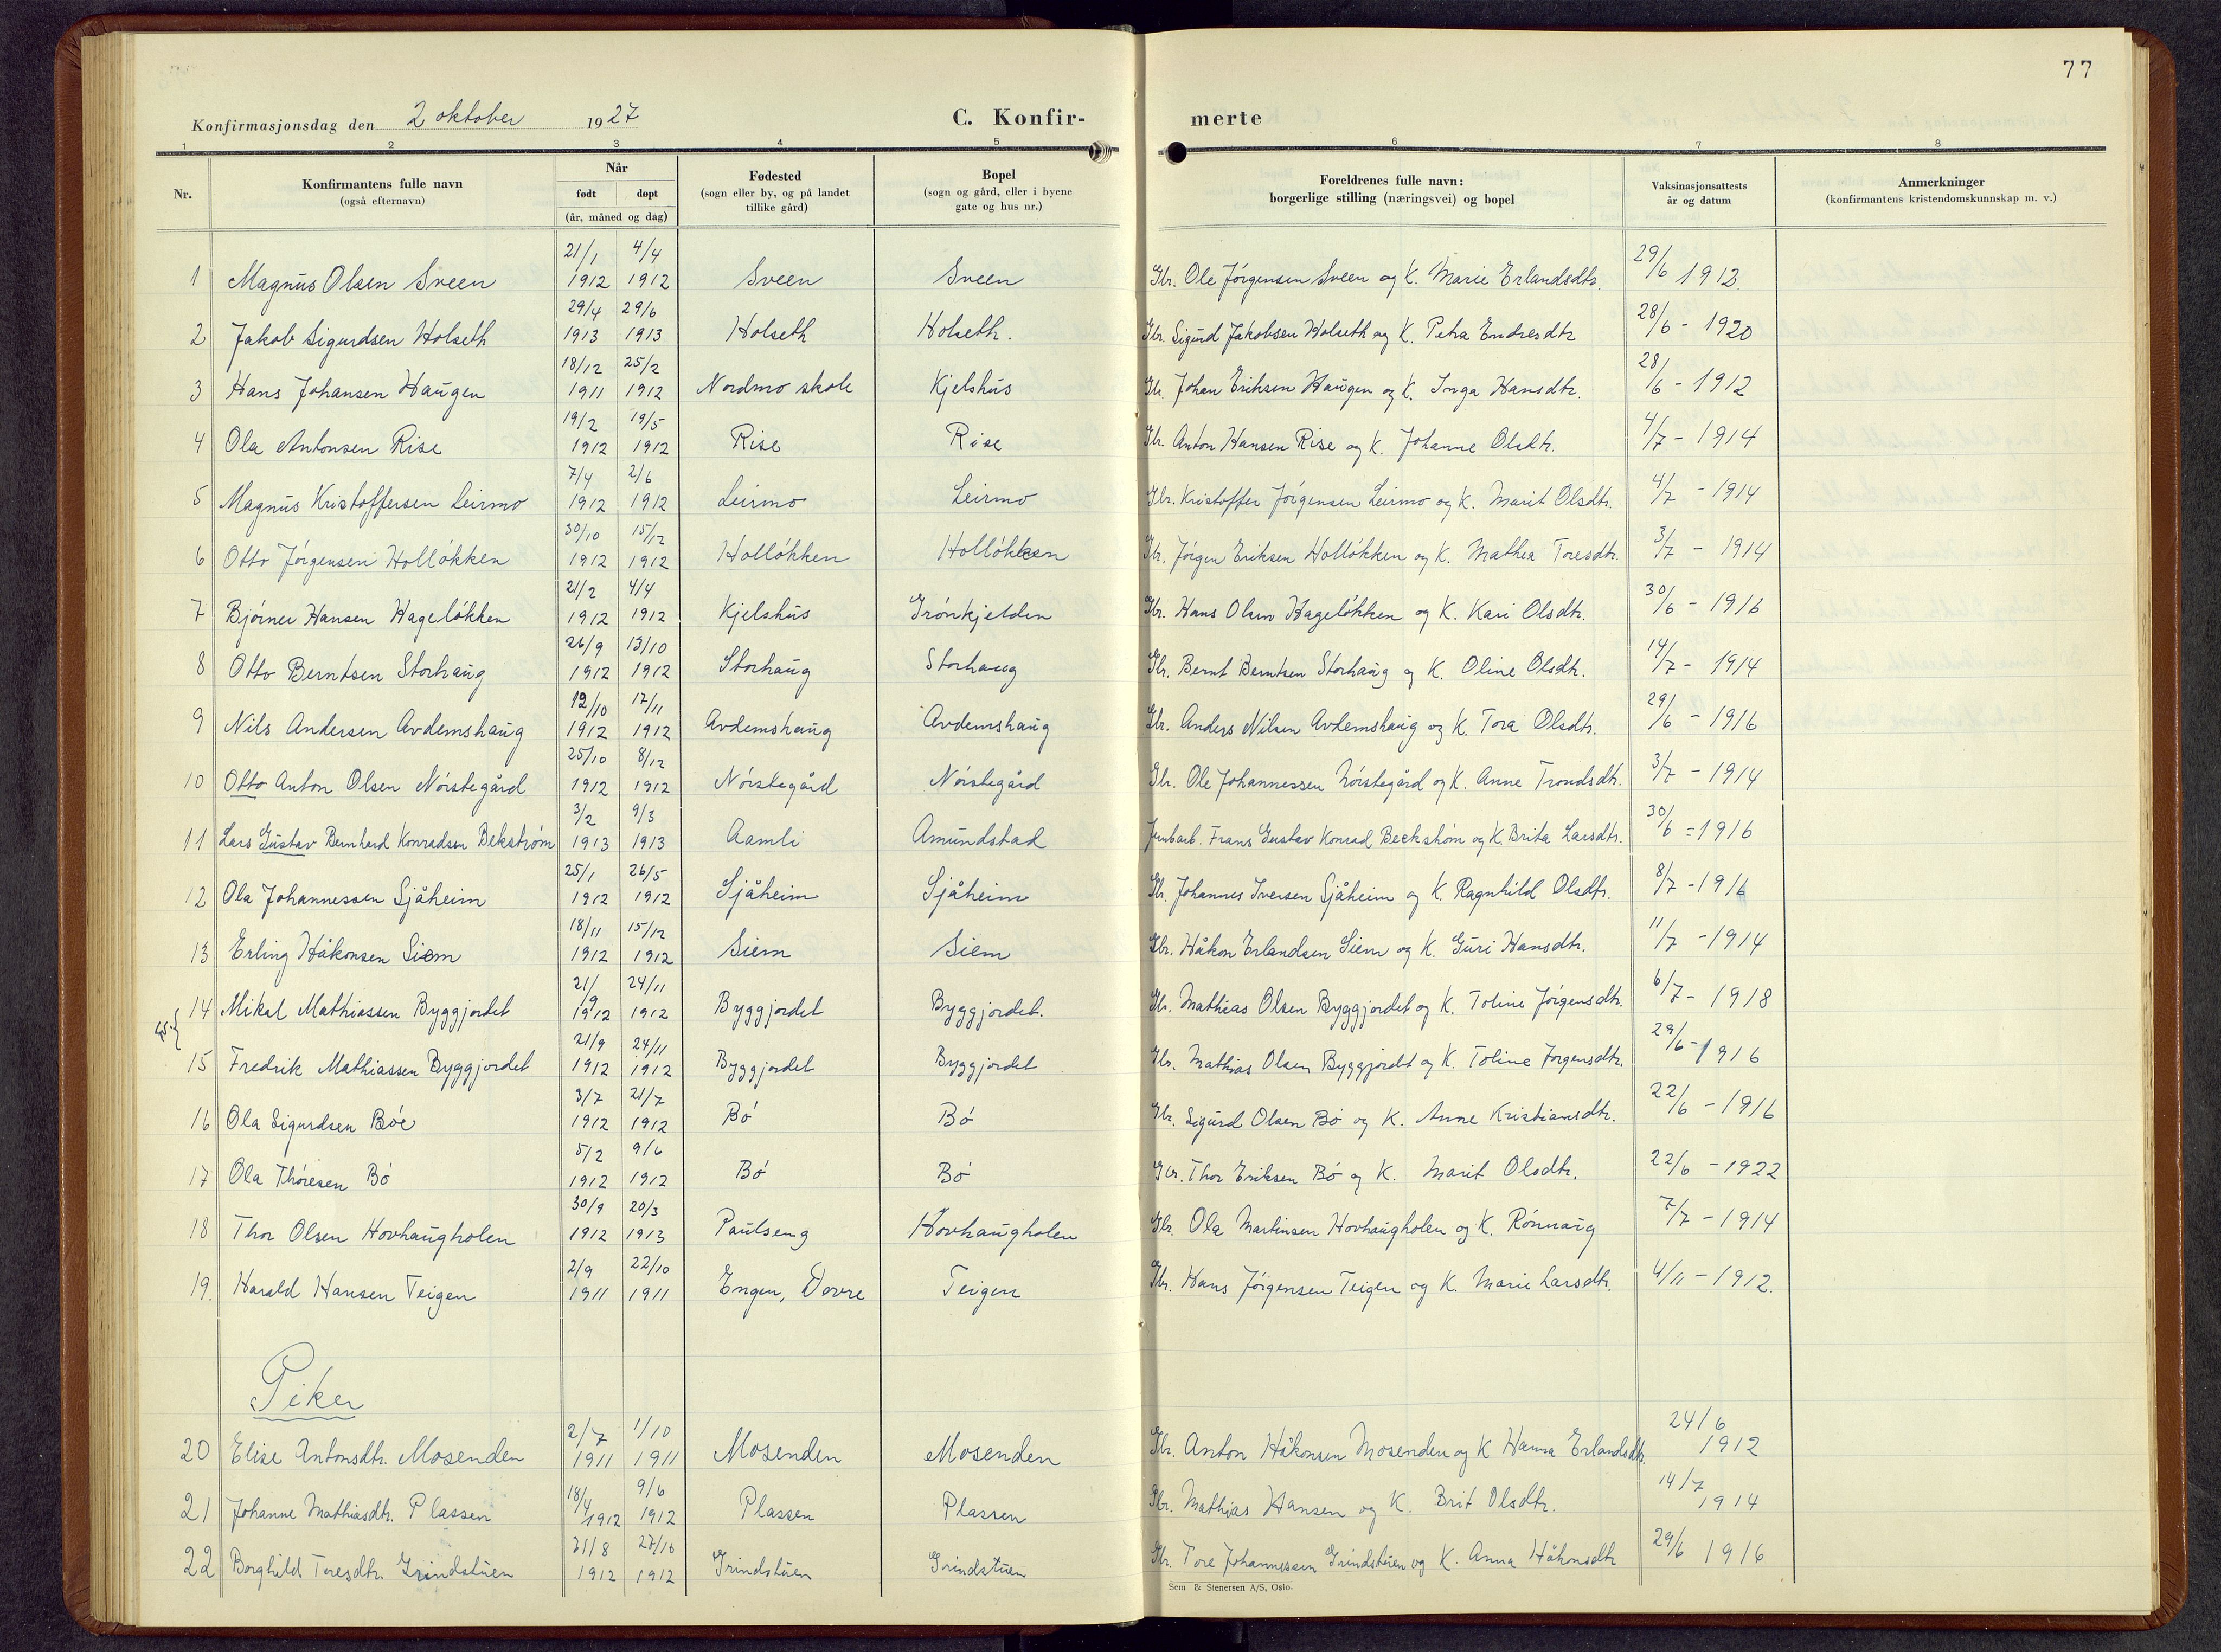 77
Konfirmasjonsdag den 2 oktober 1927 C. Konfir- merte
1 2 3 4 5 6 7 8
Nr. Konfirmantens fulle navn (også efternavn) Når født døpt (år, måned og dag) Fødested (sogn eller by, og på landet tillike gård) Bopel (sogn og gård, eller i byene gate og hus nr.) Foreldrenes fulle navn: borgerlige stilling (næringsvei) og bopel Vaksinasjonsattests år og datum Anmerkninger (konfirmantens kristendomskunnskap m. v.)
1 Magnus Olsen Sveen 21/1 1912 4/4 1912 Sveen Sveen Gbr. Ole Jørgensen Sveen og K. Marie Erlandsdtr. 29/6 1912.
2 Jakob Sigurdsen Holseth 29/4 1913 29/6 1913 Holseth Holseth. Gbr. Sigurd Jakobsen Holseth og K. Petra Endresdtr 28/6 - 1920
3 Hans Johansen Haugen 18/12 1911 25/2 1912 Nordmo skole Kjelshus Gbr. Johan Eriksen Haugen og K. Inga Hansdtr. 28/6 - 1912
4 Ola Antonsen Rise 19/2 1912 19/5 1912 Rise Rise Gbr. Anton Hansen Rise og K. Johanne Olsdtr. 4/7 - 1914
5 Magnus Kristoffersen Leirmo 7/4 1912 2/6 1912 Leirmo Leirmo Gbr. Kristoffer Jørgensen Leirmo og K. Marit Olsdtr. 4/7 - 1914
6 Otto Jørgensen Holløkken 30/10 1912 15/12 1912 Holløkken Holløkken Gbr. Jørgen Eriksen Holløkken og K. Mathea Toresdtr. 3/7 - 1914
7 Bjørner Hansen Hageløkken 21/2 1912 4/4 1912 Kjelshus Grønkjelden Gbr. Hans Olsen Hageløkken og K. Kari Olsdtr. 30/6 - 1916
8 Otto Berntsen Storhaug 26/9 1912 13/10 1912 Storhaug Storhaug Gbr. Bernt Berntsen Storhaug og K. Oline Olsdtr. 14/7 - 1914
9 Nils Andersen Avdemshaug 12/10 1912 17/11 1912 Avdemshaug Avdemshaug Gbr. Anders Nilsen Avdemshaug og K. Tora Olsdtr. 29/6 - 1916
10 Otto Anton Olsen Nørstegård 25/10 1912 8/12 1912 Nørstegård Nørstegård Gbr. Ole Johannessen Nørstegård og K. Anne Trondsdtr. 3/7 - 1914
11 Lars Gustav Bernhard Konradsen Bekstrøm 3/2 1913 9/3 1913 Aamli Amundstad Jernbarb. Frans Gustav Konrad Beckstrøm og K. Brita Larsdtr. 30/6 - 1916
12 Ola Johannessen Sjåheim 25/1 1912 26/5 1912 Sjåheim Sjåheim Gbr. Johannes Iversen Sjåheim og K. Ragnhild Olsdtr. 8/7 - 1916
13 Erling Håkonsen Siem 18/11 1912 15/12 1912 Siem Siem Gbr. Håkon Erlandsen Siem og K. Guri Hansdtr. 11/7 - 1914
14 Mikal Mathiassen Byggjordet 21/9 1912 24/11 1912 Byggjordet Byggjordet. Gbr. Mathias Olsen Byggjordet og K. Toline Jørgensdtr. 6/7 - 1918
15 Fredrik Mathiassen Byggjordet 21/9 1912 24/11 1912 Byggjordet Byggjordet Gbr. Mathias Olsen Byggjordet og K. Toline Jørgensdtr. 29/6 - 1916
16 Ola Sigurdsen Bøe 3/7 1912 21/7 1912 Bø Bø Gbr. Sigurd Olsen Bø og K. Anne Kristiansdtr. 22/6 - 1916
17 Ola Thoresen Bø 5/2 1912 9/6 1912 Bø Bø Gbr. Thor Eriksen Bø og K. Marit Olsdtr. 22/6 - 1922
18 Thor Olsen Hovhaugholen 30/9 1912 20/3 1913 Paulseng Hovhaugholen Gbr. Ola Martinsen Hovhaugholen og K. Rønnaug 7/7 - 1914
19. Harald Hansen Teigen 2/9 1911 22/10 1911 Engen, Dovre Teigen Gbr. Hans Jørgensen Teigen og K. Marie Larsdtr. 4/11 - 1912.
Piker
20 Elise Antonsdtr. Mosenden 2/7 1911 1/10 1911 Mosenden Mosenden Gbr. Anton Håkonsen Mosenden og K Hanna Erlandsdtr. 24/6 1912
21 Johanne Mathiasdtr. Plassen 18/4 1912 9/6 1912 Plassen Plassen Gbr. Mathias Hansen og K. Brit Olsdtr. 14/7 1914
22 Borghild Toresdtr. Grindstuen 21/8 1912 27/10 1912 Grindstuen Grindstuen Gbr. Tore Johannessen Grindstuen og K. Anna Håkonsdtr 29/6 1916
Sem & Stenersen A/S, Oslo.